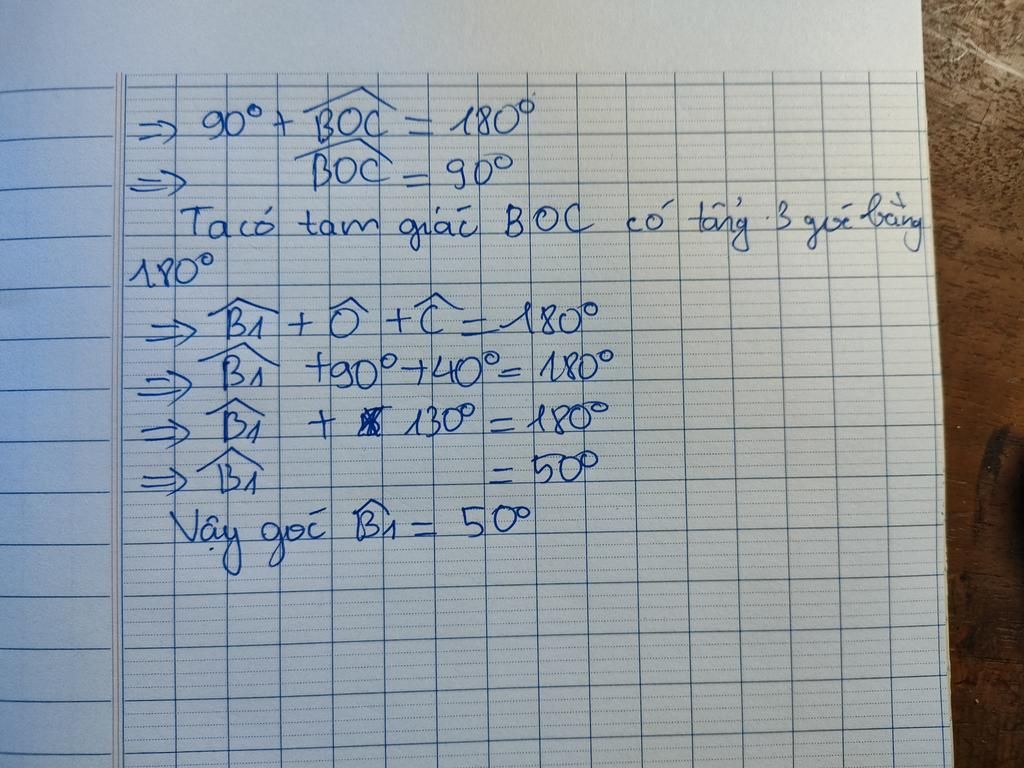 ⇒ 90° + BOC = 180°
⇒ BOC = 90°
Ta có tam giác BOC có tổng 3 góc bằng
180°
⇒ B1 + O + C = 180°
⇒ B1 + 90° + 40° = 180°
⇒ B1 + 130° = 180°
⇒ B1 = 50°
Vậy góc B1 = 50°